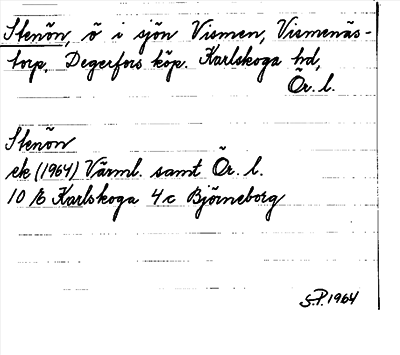 Stenön, ö i sjön Vismen, Vismenäs-
torp, Degerfors köp. Karlskoga hd,
Ör. l.
Stenön
ek (1964) Värml. samt Ör. l.
10 E Karlskoga 4 c Björneborg
S.P. 1964